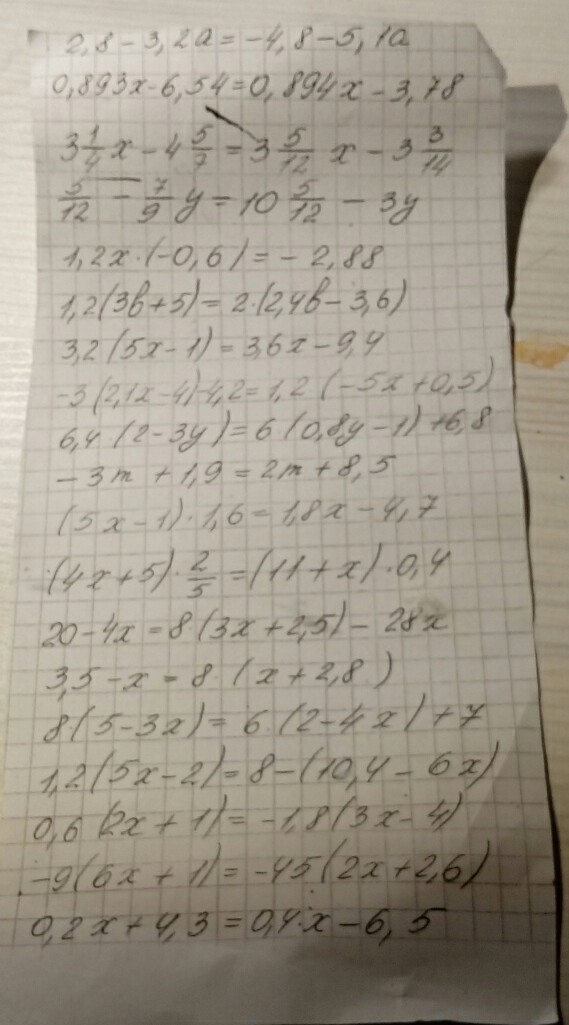 2,8 - 3,2a = -4,8 - 5,1a
0,893x - 6,54 = 0,894x - 3,78
3 1/4 x - 4 5/7 = 3 5/12 x - 3 3/14
5/12 - 7/9 y = 10 5/12 - 3y
1,2x · (-0,6) = - 2,88
1,2(3b + 5) = 2 · (2,4b - 3,6)
3,2(5x - 1) = 3,6x - 9,4
-3(2,1x - 4) - 4,2 = 1,2(-5x + 0,5)
6,4(2 - 3y) = 6(0,8y - 1) + 6,8
-3m + 1,9 = 2m + 8,5
(5x - 1) · 1,6 = 1,8x - 4,7
(4x + 5) · 2/5 = (11 + x) · 0,4
20 - 4x = 8(3x + 2,5) - 28x
3,5 - x = 8(x + 2,8)
8(5 - 3x) = 6(2 - 4x) + 7
1,2(5x - 2) = 8 - (10,4 - 6x)
0,6(2x + 1) = -1,8(3x - 4)
-9(6x + 1) = -45(2x + 2,6)
0,2x + 4,3 = 0,4x - 6,5